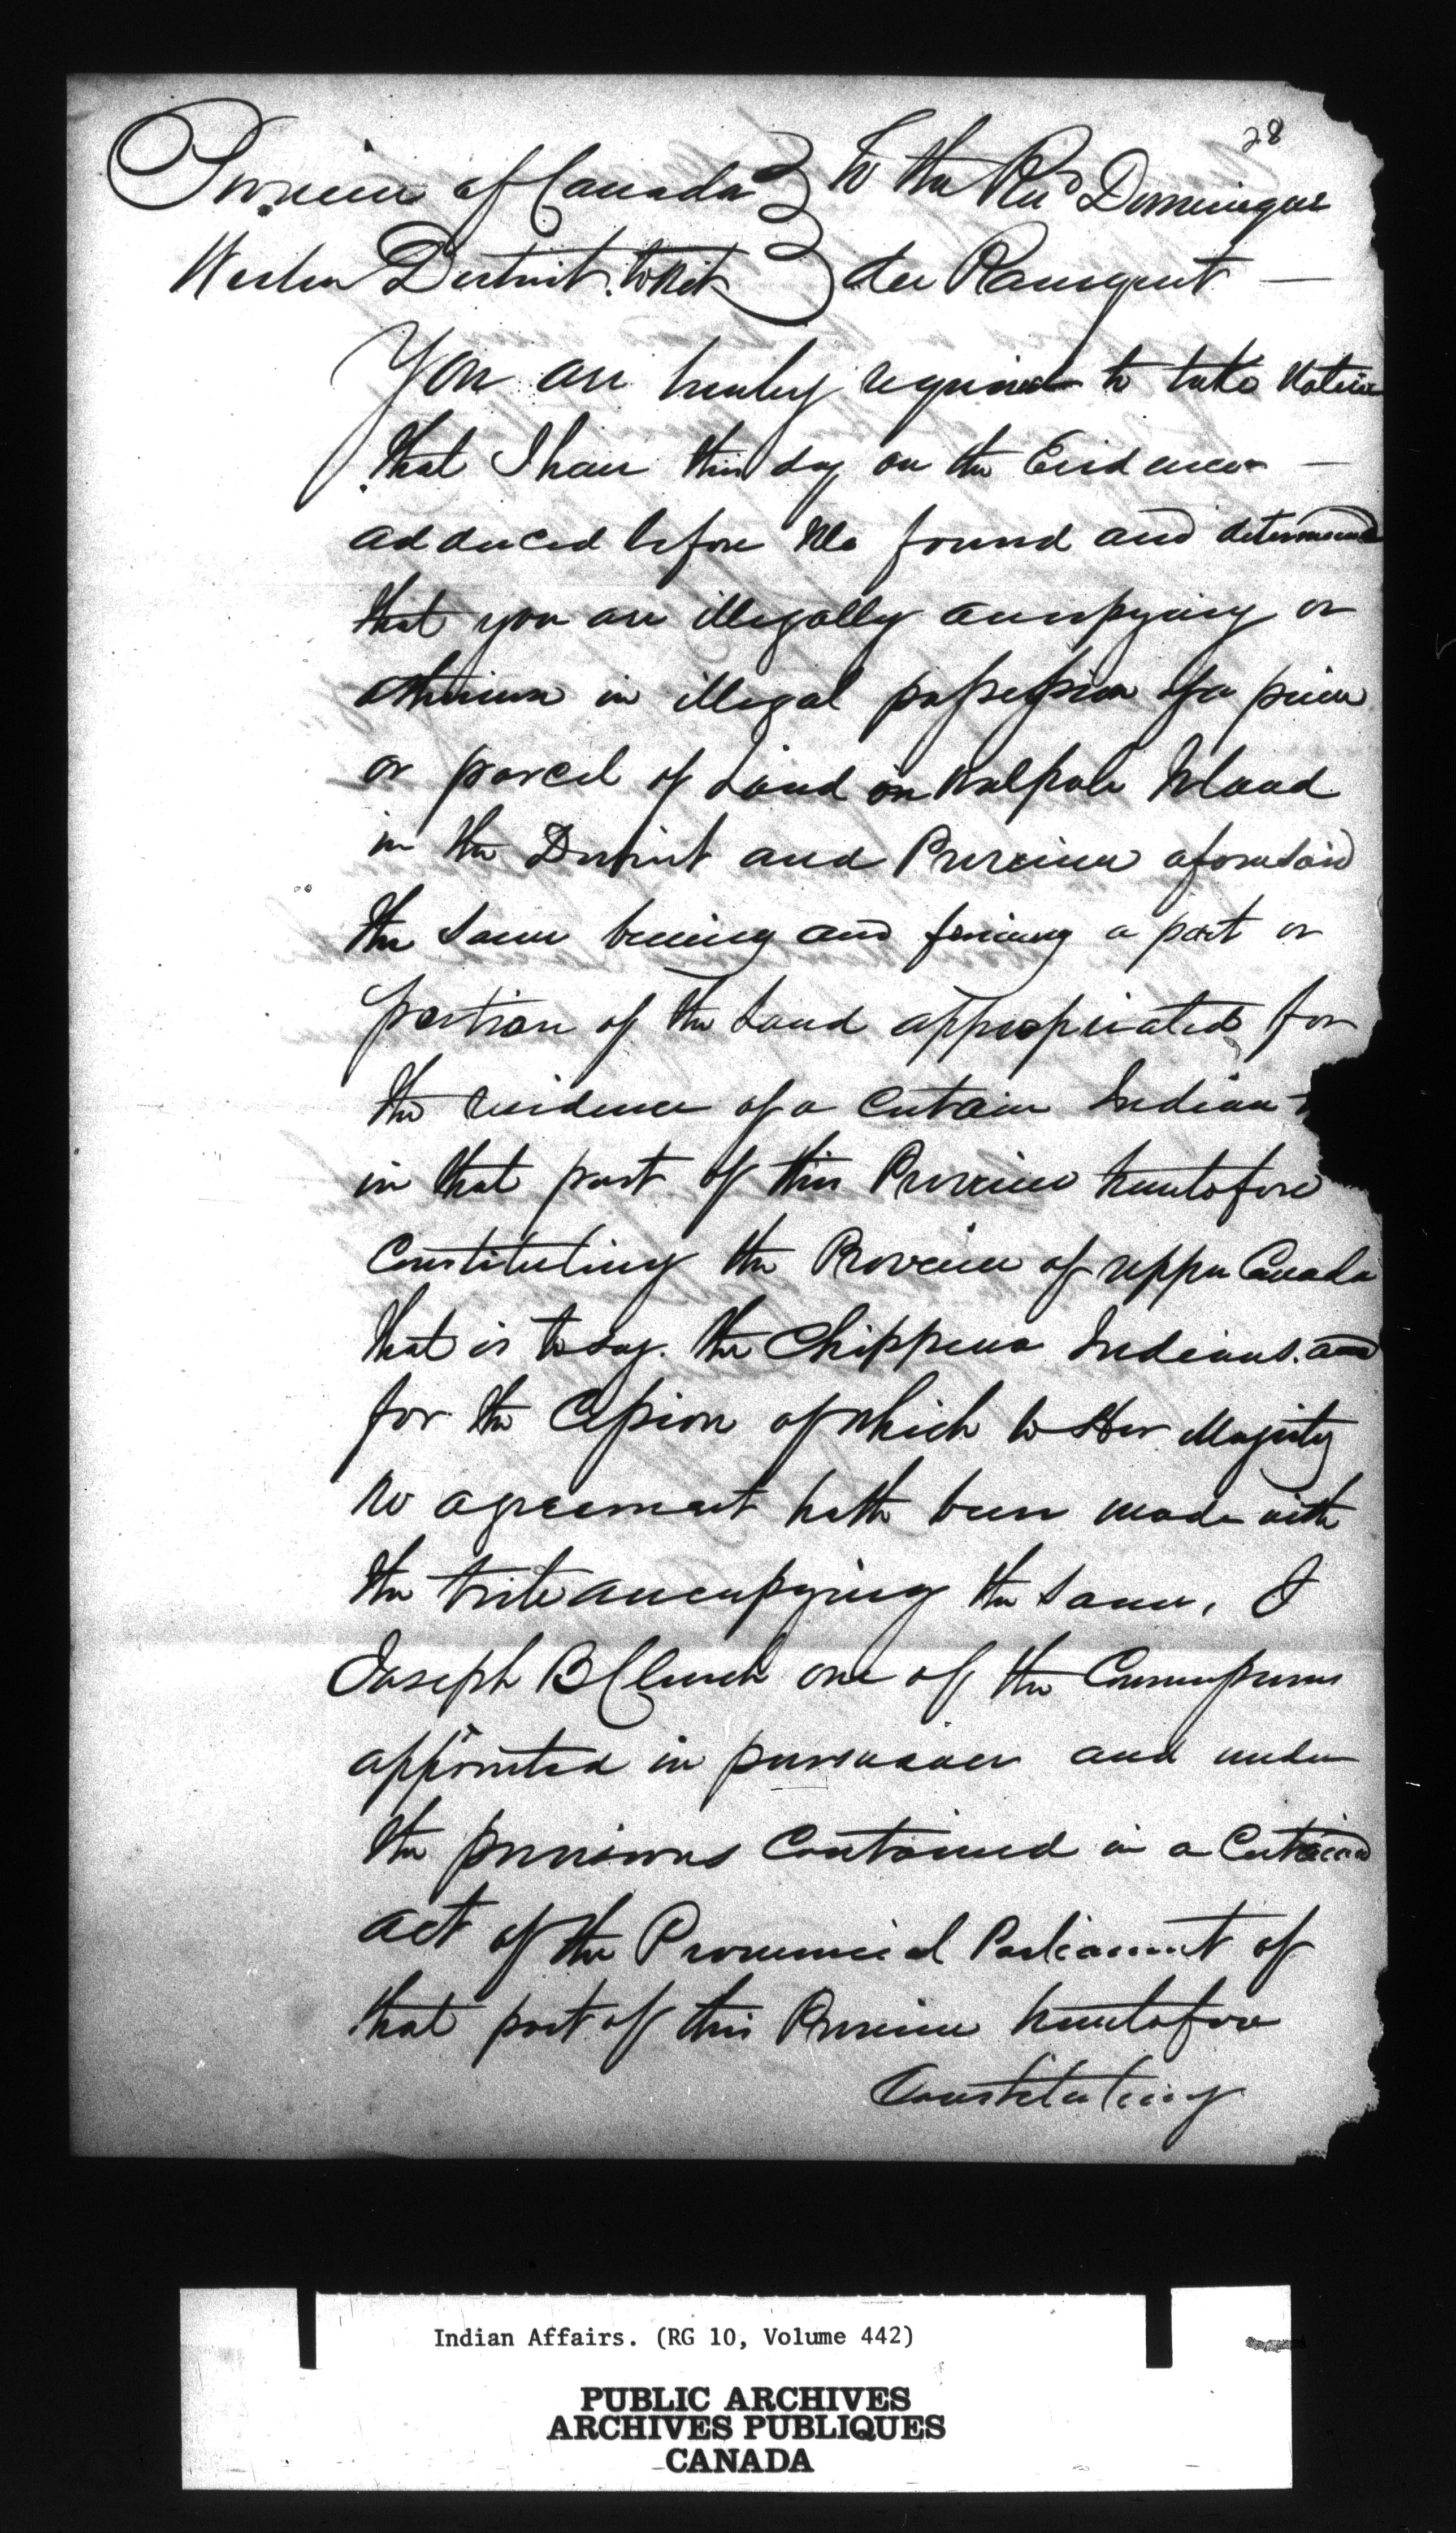 28
Province of Canada } To the Revd Dominique
Western District. to Wit } du Ranquet —
You are hereby required to take Notice
that I have this day on the Evidence —
adduced before Me found and determined
that you are illegally occupying or
otherwise in illegal possession of a piece
or parcel of Land on Walpole Island
in the District and Province aforesaid
the same being and forming a part or
portion of the Land appropriated for
the residence of a certain Indian
in that part of this Province heretofore
Constituting the Province of Upper Canada
that is to say. the Chippewa Indians. and
for the Cession of which to Her Majesty
no agreement hath been made with
the tribe occupying the same, I
Joseph B Clench one of the Commissioners
appointed in pursuance and under
the provisions Contained in a Certain
act of the Provincial Parliament of
that part of this Province heretofore
Constituting
Indian Affairs. (RG 10, Volume 442)
PUBLIC ARCHIVES
ARCHIVES PUBLIQUES
CANADA